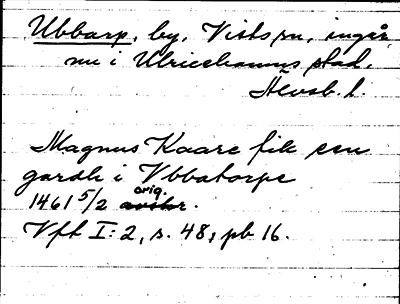 Ubbarp, by, Vists sn, ingår
nu i Ulricehamns stad.
Älvsb. l.
Magnus Kaare fik een
gardh i Vbbatorpe
orig.
1461 5/2 avskr.
Vft I:2, s. 48, pb 16.